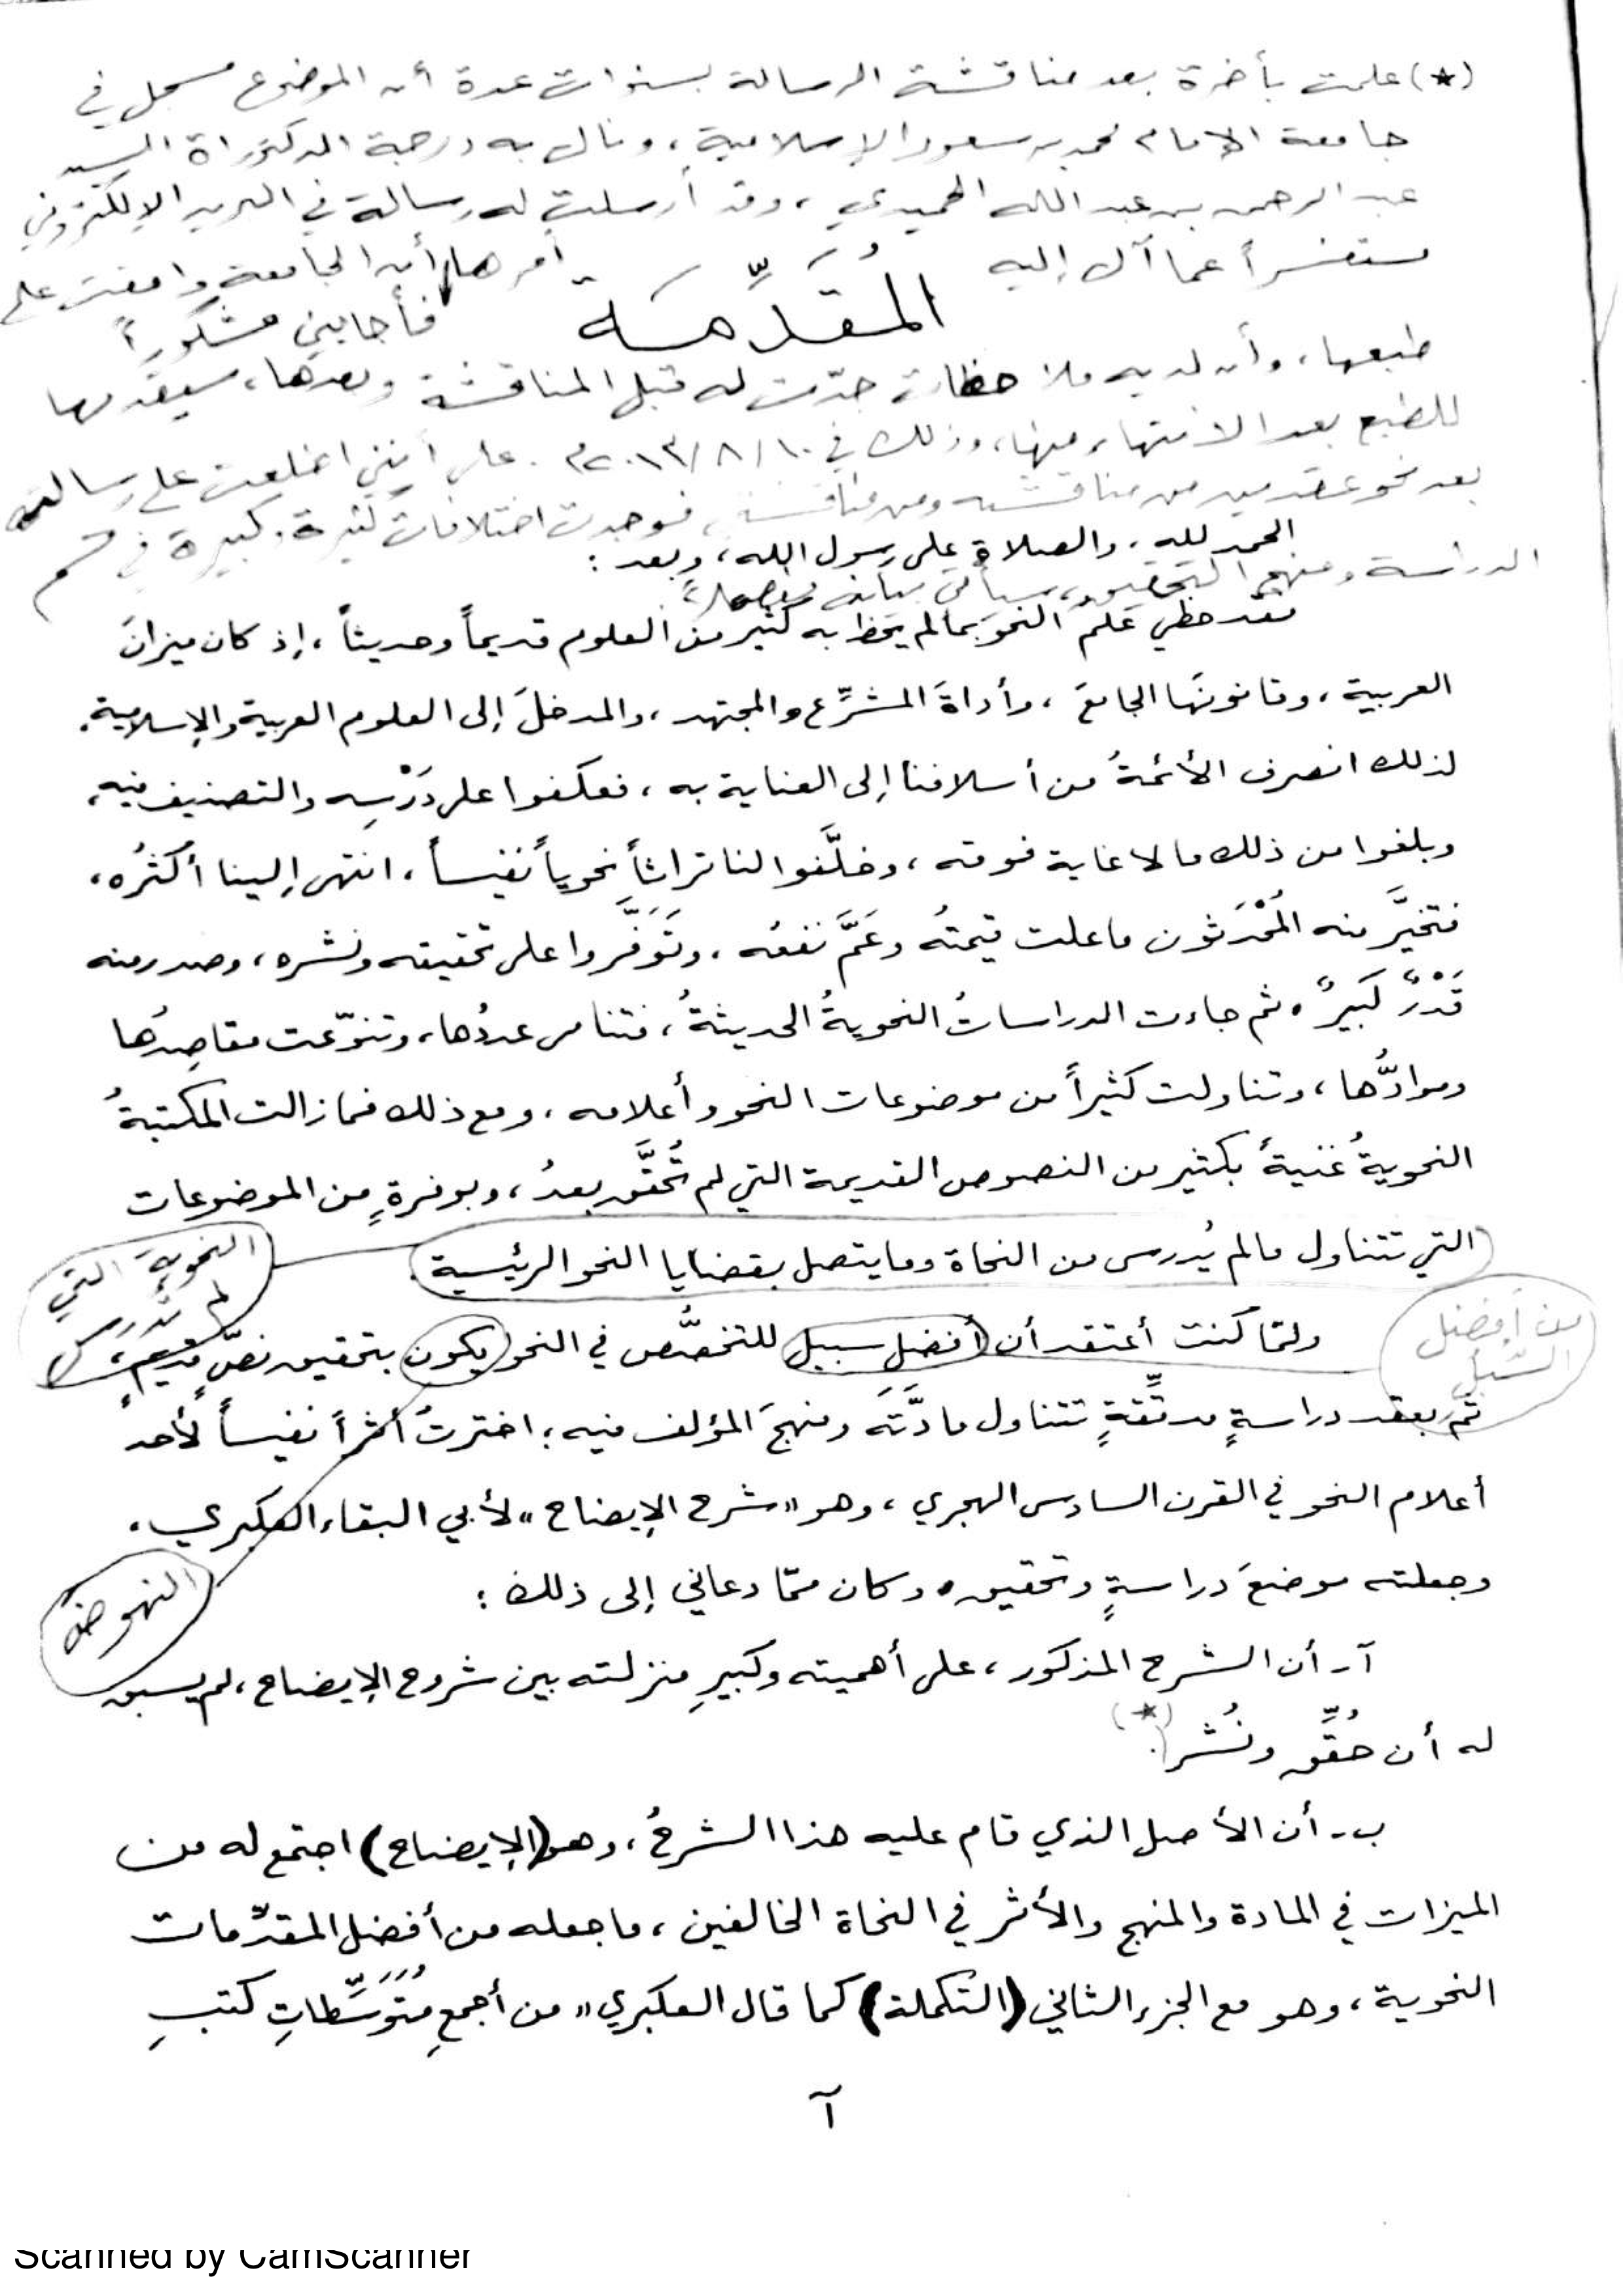 (*) علمت بأخرة بعد مناقشة الرسالة بسنوات عدة أن الموضوع مسجل في
جامعة الإمام محمد بن سعود الإسلامية، ونال به درجة الدكتوراة السيد
عبد الرحمن بن عبد الله الحميدي، وقد أرسلت له رسالة في البريد الإلكتروني
مستفسراً عما آل إليه أمرها، فأجابني مشكوراً أن الجامعة وافقت على
المُقَدِّمَة
طبعها، وأن لديه ملاحظات جدّت له قبل المناقشة وبعدها، سيقدمها
للطبع بعد الانتهاء منها، وذلك في ١٠/٨/٢٠١٣م. على أنني اطلعت على رسالته
بعد نحو عقدين من مناقشته ومن مناقشتي، فوجدت اختلافات كثيرة وكبيرة في قسم
الحمد لله، والصلاة على رسول الله، وبعد:
الدراسة ومنهج التحقيق، سيأتي بيانه مفصلاً
فقد حظي علم النحو بما لم يحظ به كثير من العلوم قديماً وحديثاً، إذ كان ميزانَ
العربية، وقانونَها الجامعَ، وأداةَ المشرِّع والمجتهد، والمدخلَ إلى العلوم العربية والإسلامية.
لذلك انصرف الأئمةُ من أسلافنا إلى العناية به، فعكفوا على دَرْسِه والتصنيف فيه،
وبلغوا من ذلك ما لا غاية فوقه، وخلَّفوا لنا تراثاً نحوياً نفيساً، انتهى إلينا أكثرُه،
فتخيَّر منه المُحْدَثون ما علت قيمتُه وعَمَّ نفعُه، وتَوَفَّروا على تحقيقه ونشره، وصدر منه
قَدْرٌ كَبيرٌ، ثم جاءت الدراساتُ النحويةُ الحديثةُ، فتنامى عددُها، وتنوّعت مقاصِدُها
وموادُّها، وتناولت كثيراً من موضوعات النحو وأعلامه، ومع ذلك فما زالت المكتبةُ
النحويةُ غنيةً بكثير من النصوص القديمة التي لم تُحقَّق بعدُ، وبوفرةٍ من الموضوعات
التي تتناول ما لم يُدرس من النحاة وما يتصل بقضايا النحو الرئيسية.
النحوية التي
لم تُدرس
ولمّا كنت أعتقد أن أفضل سبيل للتخصُّص في النحو يكون بتحقيق نصّ قديمٍ،
من أفضل
السُّبل
ثم بعقد دراسةٍ مدقّقةٍ تتناول مادَّتَه ومنهجَ المؤلف فيه؛ اخترتُ أثراً نفيساً لأحد
أعلام النحو في القرن السادس الهجري، وهو "شرح الإيضاح" لأبي البقاء العكبري،
وجعلته موضعَ دراسةٍ وتحقيق، وكان ممّا دعاني إلى ذلك:
النهوض
آ- أن الشرح المذكور، على أهميته وكبيرِ منزلته بين شروح الإيضاح، لم يسبق
له أن حُقِّق ونُشر(*).
ب- أن الأصل الذي قام عليه هذا الشرحُ، وهو (الإيضاح) اجتمع له من
الميزات في المادة والمنهج والأثر في النحاة الخالفين، ما جعله من أفضل المقدّمات
النحوية، وهو مع الجزء الثاني (التكملة) كما قال العكبري "من أجمعِ مُتَوَسِّطاتِ كتبِ
آ
Scanned by CamScanner